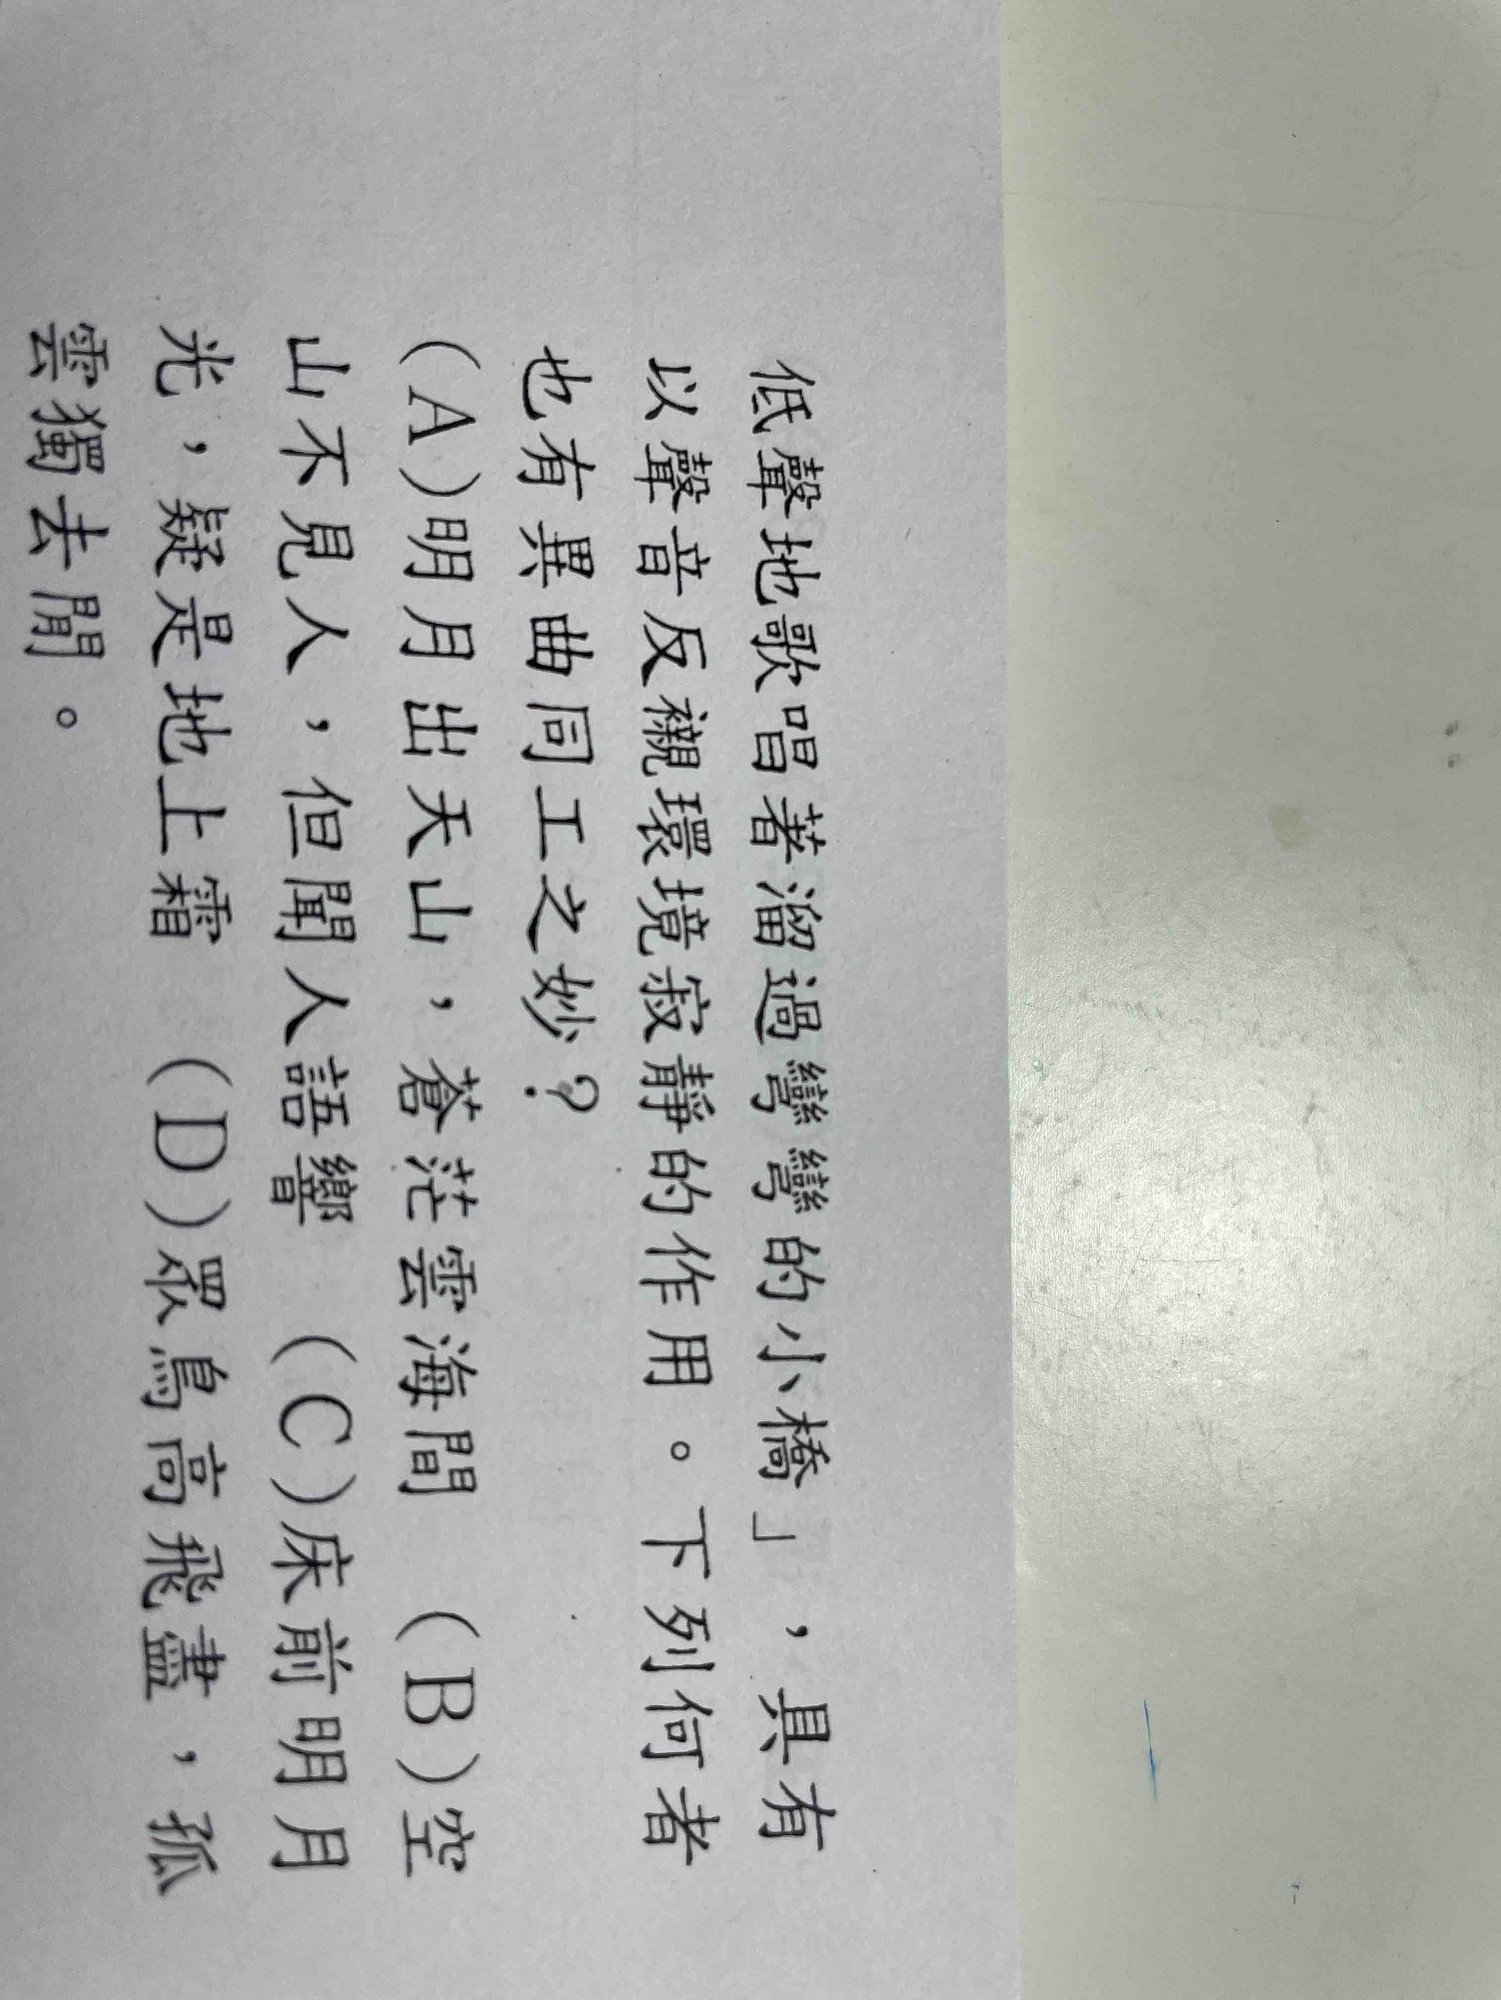 低聲地歌唱著溜過彎彎的小橋」，具有
以聲音反襯環境寂靜的作用。下列何者
也有異曲同工之妙？
(A)明月出天山，蒼茫雲海間　(B)空
山不見人，但聞人語響　(C)床前明月
光，疑是地上霜　(D)眾鳥高飛盡，孤
雲獨去閒。